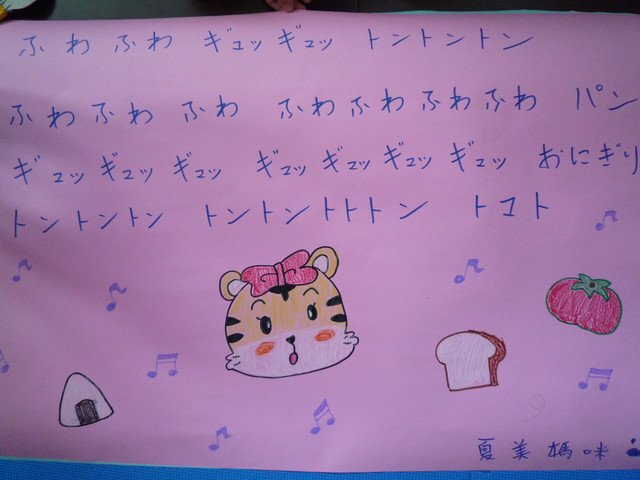 ふわふわ ギュッ ギュッ トントントン
ふわ ふわ ふわ ふわ ふわ ふわ ふわ パン
ギュッ ギュッ ギュッ ギュッ ギュッ ギュッ ギュッ おにぎり
トントントン トントントトトン トコト
夏美媽咪